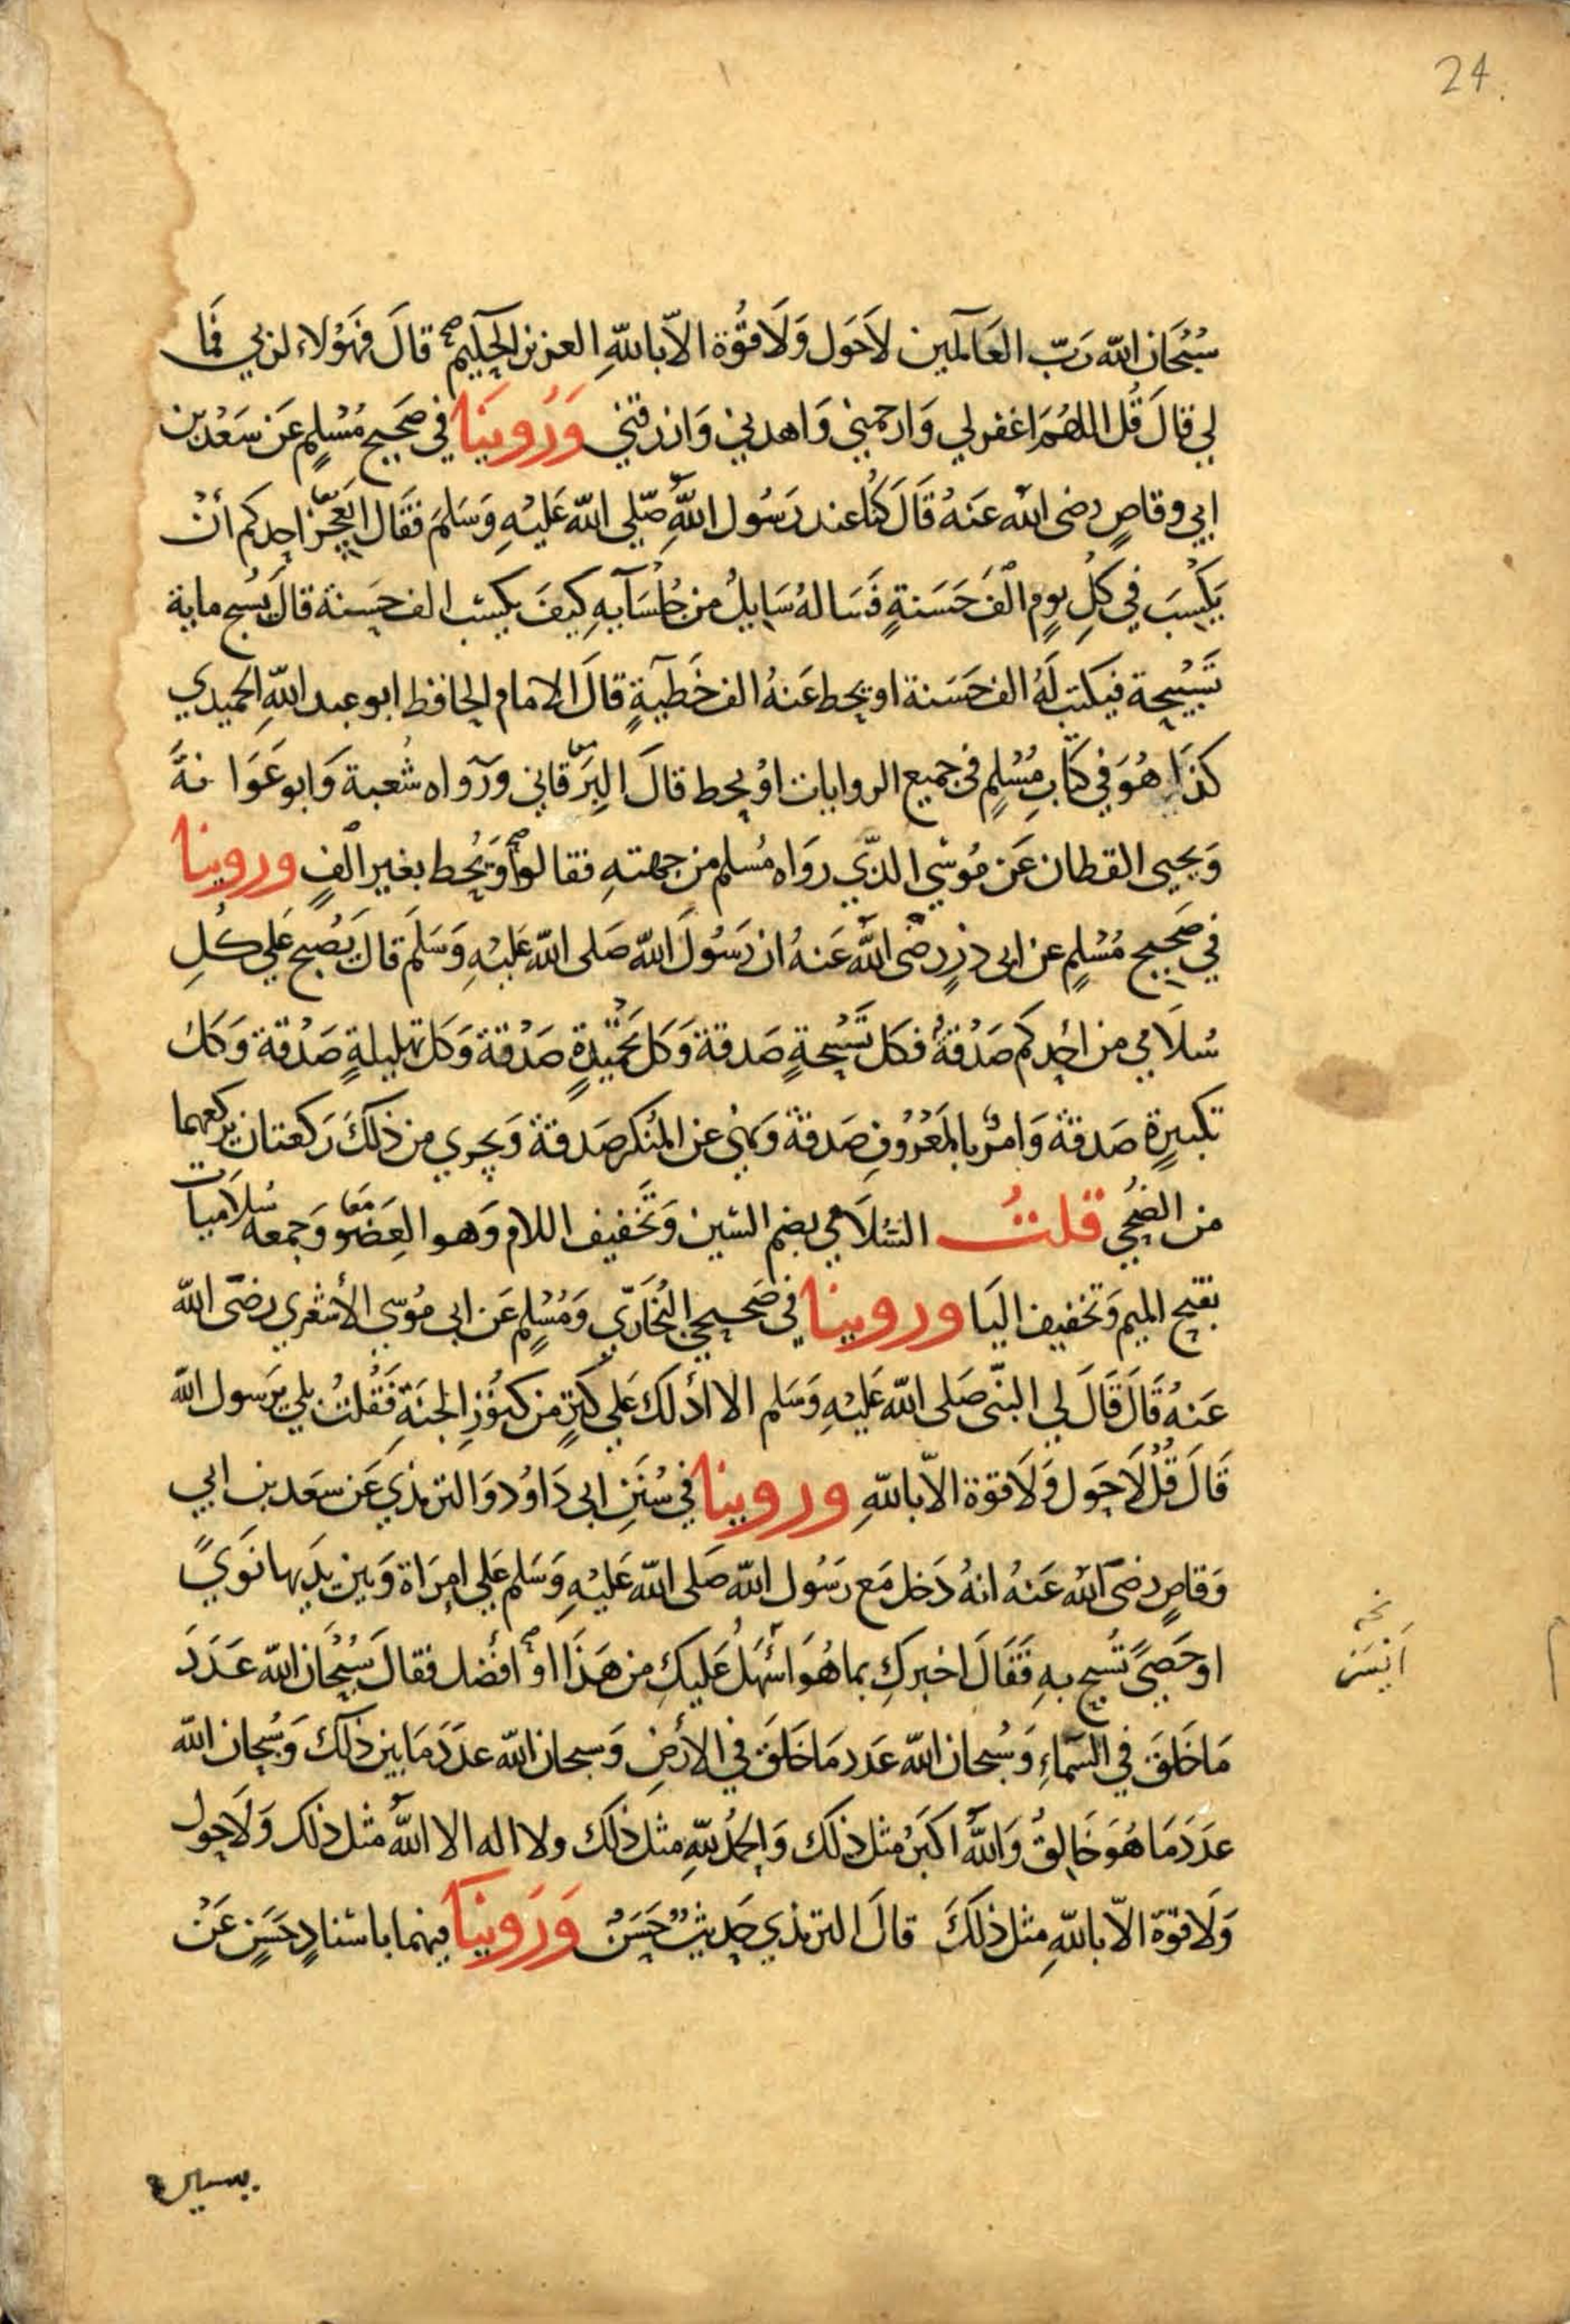 24.
سُبْحَانَ اللّهِ رَبّ العَالَمين لَاحَول وَلَاقُوّة الاّ باللّهِ العزيز الحكيم قالَ فهَؤلاء لربي فَمَا
لي قالَ قُل اللهُمَ اغفرلي وَارحمني وَاهدني وَارزقني وَرُوينَا في صَحيح مُسْلِم عَن سَعْد بن
ابي وقاصٍ رضى الله عَنهُ قَالَ كُنا عند رَسُول اللّهِ صلّي اللّه عَليْهِ وَسَلمَ فقَال ايَعجز احدكم أنْ
يَكْسِبَ في كلِ يومٍ الْفَ حَسَنةٍ فَسَالهُ سَايلٌ من جُلسَآيهِ كيفَ يكسب الف حسَنة قالَ يسُبح ماية
تَسْبيحة فيكتب لَهُ الف حَسَنة او يحط عَنهُ الف خَطيَّةٍ قالَ الامام الحافظ ابو عبد اللّهِ الحميدي
كذا هُوَ في كتابِ مُسْلِمٍ في جميع الروايات اوْ يحط قالَ البرقاني وَرَواه شُعبة وَابو عَوَانةَ
وَيحيى القطان عَن مُوسي الذّي روَاه مُسلم من جهتهِ فقالوا وَيُحط بغير الفٍ وروينا
في صَحيح مُسْلِمٍ عن ابى ذرٍ رضى اللّه عَنهُ ان رَسُولَ اللّه صَلى اللّه عَليْهِ وَسَلمَ قالَ يُصْبح عَلي كُلِ
سُلَامي من احدكم صَدَقةٌ فكل تَسْبيحةٍ صَدقة وَكل تحميْدةٍ صَدْقة وَكل تهليلةٍ صَدْقة وَكل
تكبيرةٍ صَدقة وَامرٌ بالمَعْرُوفِ صَدقة وَنهي عن المنكر صَدقة وَيجزي من ذلكَ رَكعتان يركعهما
من الضُحي قلتُ السُلَامي بضم السين وَتَخفيف اللام وَهو العضو وَجمعه سُلَاميات
بفتح الميم وَتخفيف اليَا وروينا في صَحيحي البُخَاريّ وَمُسْلِم عَن ابى مُوسي الأشعري رضى اللّه
عَنهُ قَالَ قَالَ لي النبّى صَلى اللّه عَليْهِ وَسَلم الا ادُلك عَلي كنزٍ من كنُوْزِ الجنَةِ فَقُلتُ بلي يَرَسول اللّه
قَالَ قُلْ لَاحَول وَلَاقوّة الاّ باللّهِ وروينا في سُنَنِ ابى دَاوُد وَالترمذي عَن سَعَد بن ابي
وَقاصٍ رضىَ اللّه عَنهُ انهُ دَخل مَع رَسُول اللّه صَلى اللّه عَليْهِ وَسَلم عَلي امرَاة وَبين يدَيها نَويً
او حَصيً تُسَبح بهِ فَقَالَ اخبركِ بما هُوَ اسْهَلُ عَليكِ من هَذَا اوْ افضَل فقالَ سُبْحَانَ اللّه عَدَدَ
مَا خَلَقَ في السَّمَاءِ وَسُبحان اللّه عَدد مَا خَلَقَ في الأرضِ وَسبحان اللّه عدَدَ مَا بين ذلكَ وَسُبحان اللّه
عدَدَ مَا هُوَ خَالِقٌ وَاللّه اكبَرُ مثل ذلكَ وَالحمدُ للّهِ مثل ذلكَ ولا اله الا اللّه مثل ذلكَ وَلَاحول
وَلَاقوّة الاّ باللّهِ مثل ذلكَ قالَ الترمذي حَديثٌ حَسَنٌ وَرَوينَا فيهما باسْنادٍ حَسَنٍ عَنْ